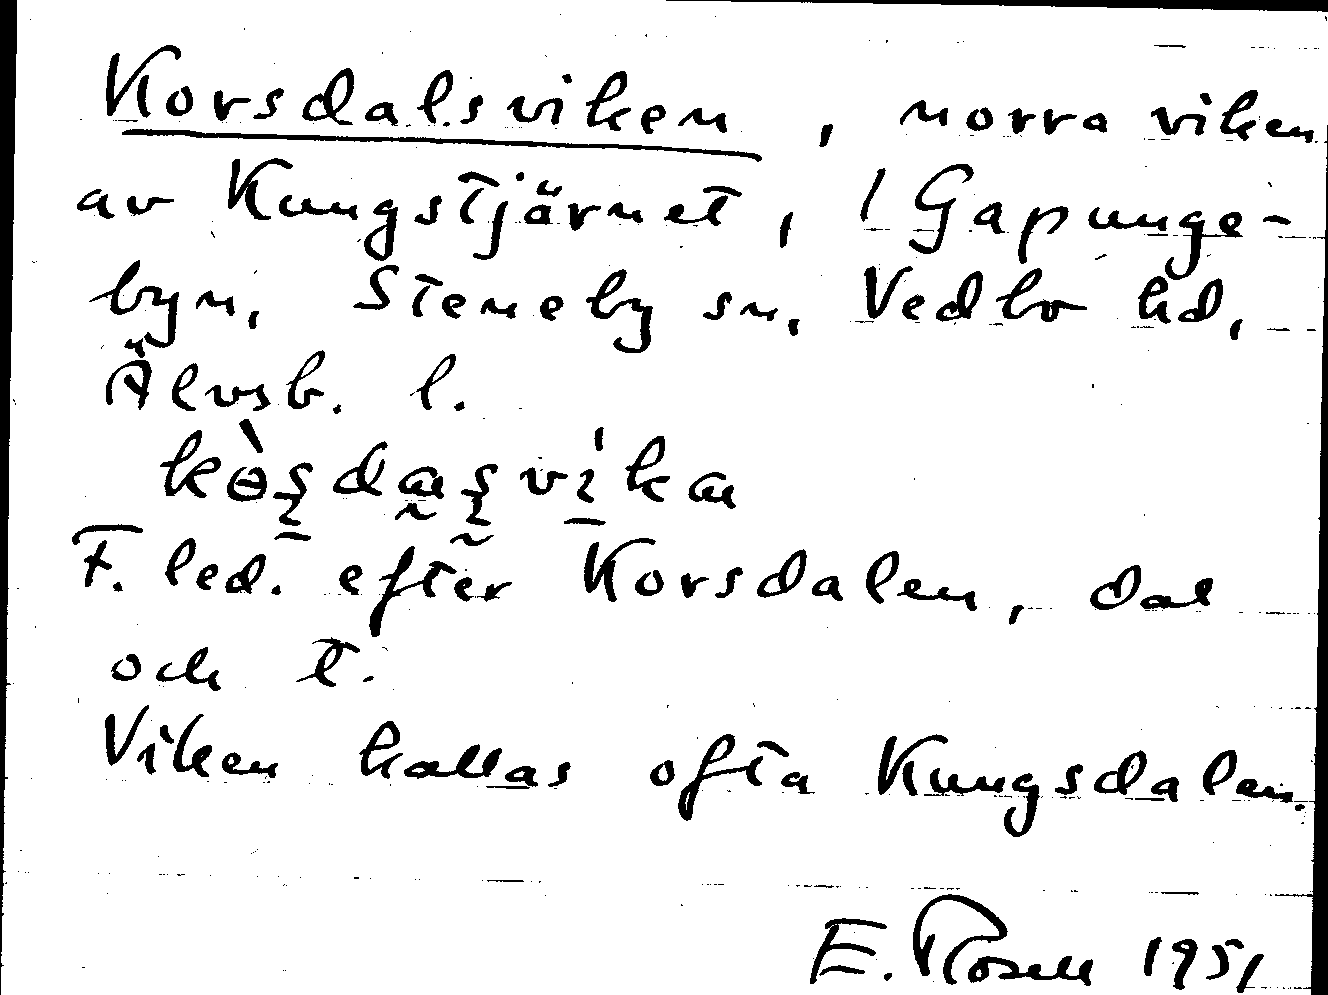 Korsdalsviken, norra viken
av Kungstjärnet, i Gapunge-
byn, Steneby sn, Vedbo hd,
Älvsb. l.
F. led. efter Korsdalen, dal
och t.
Viken kallas ofta Kungsdalen.
E. Rosell 1951